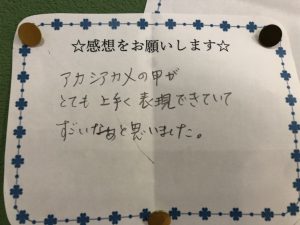 ☆感想をお願いします☆
アカシアカメの甲が
とても上手く表現できていて
すごいなぁと思いました。